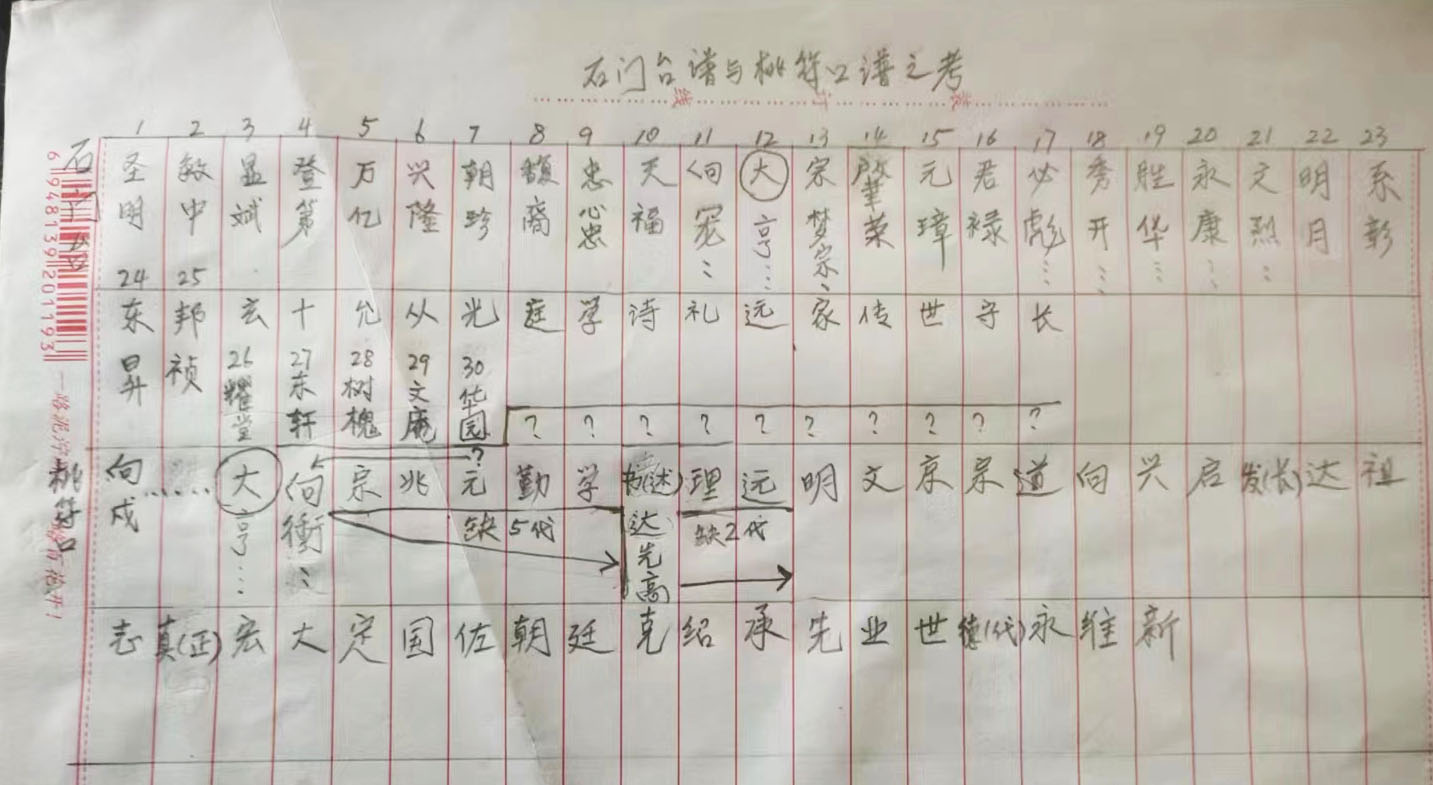 石门台谱与桃符口谱之考
装 订 线
1 2 3 4 5 6 7 8 9 10 11 12 13 14 15 16 17 18 19 20 21 22 23
石门台
圣 敏 显 登 万 兴 朝 馥 忠 天 向 大 宗 啟 元 君 必 秀 胜 永 文 明 系
明 中 斌 第 亿 隆 珍 裔 心 福 宏 亨 梦 華 璋 禄 彪 开 华 康 烈 月 彰
忠 宗 荣
24 25
东 邦 玄 十 允 从 光 庭 学 诗 礼 远 家 传 世 守 长
昇 祯 26 27 28 29 30
耀 东 树 文 华
堂 轩 槐 庵 园 ? ? ? ? ? ? ? ? ? ?
?
桃符口
向 …… 大 向 宗 兆 元 勤 学 (述) 理 远 明 文 京 宗 道 向 兴 启 发(长) 达 祖
成 亨… 衝 缺5代 达先高 缺2代
志 真(正) 宏 大 定 国 佐 朝 廷 克 绍 承 先 业 世 德(代) 永 维 新
6948139201193